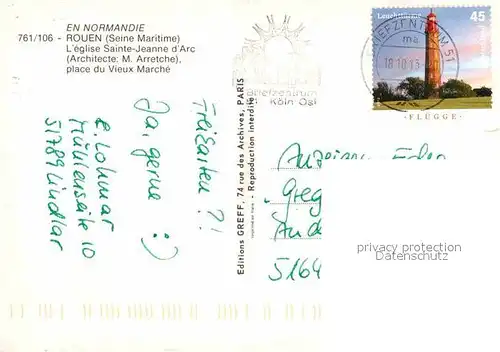 EN NORMANDIE
761/106 - ROUEN (Seine Maritime)
L'église Sainte-Jeanne d'Arc
(Architecte: M. Arretche),
place du Vieux Marché
Freikarten ?!
Ja, gerne :)
E. Lohmar
Mühlenseite 10
51789 Lindlar
Editions GREFF, 74 rue des Archives, PARIS
- Reproduction interdite
Briefzentrum
Köln Ost
BRIEFZENTRUM 51
ma
18.10.13
Leuchttürme
45
·FLÜGGE·
Greg
5164
privacy protection
Datenschutz